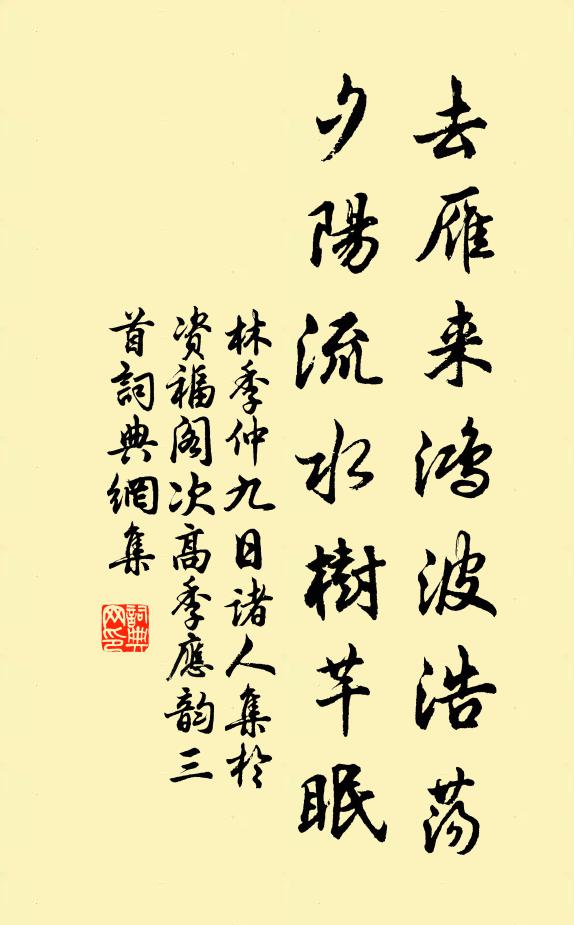 去雁来鸿波浩荡
夕陽流水樹芊眠
林季仲九日诸人集於
资福阁次高季應韵三
首詞典網集
詞典
网印